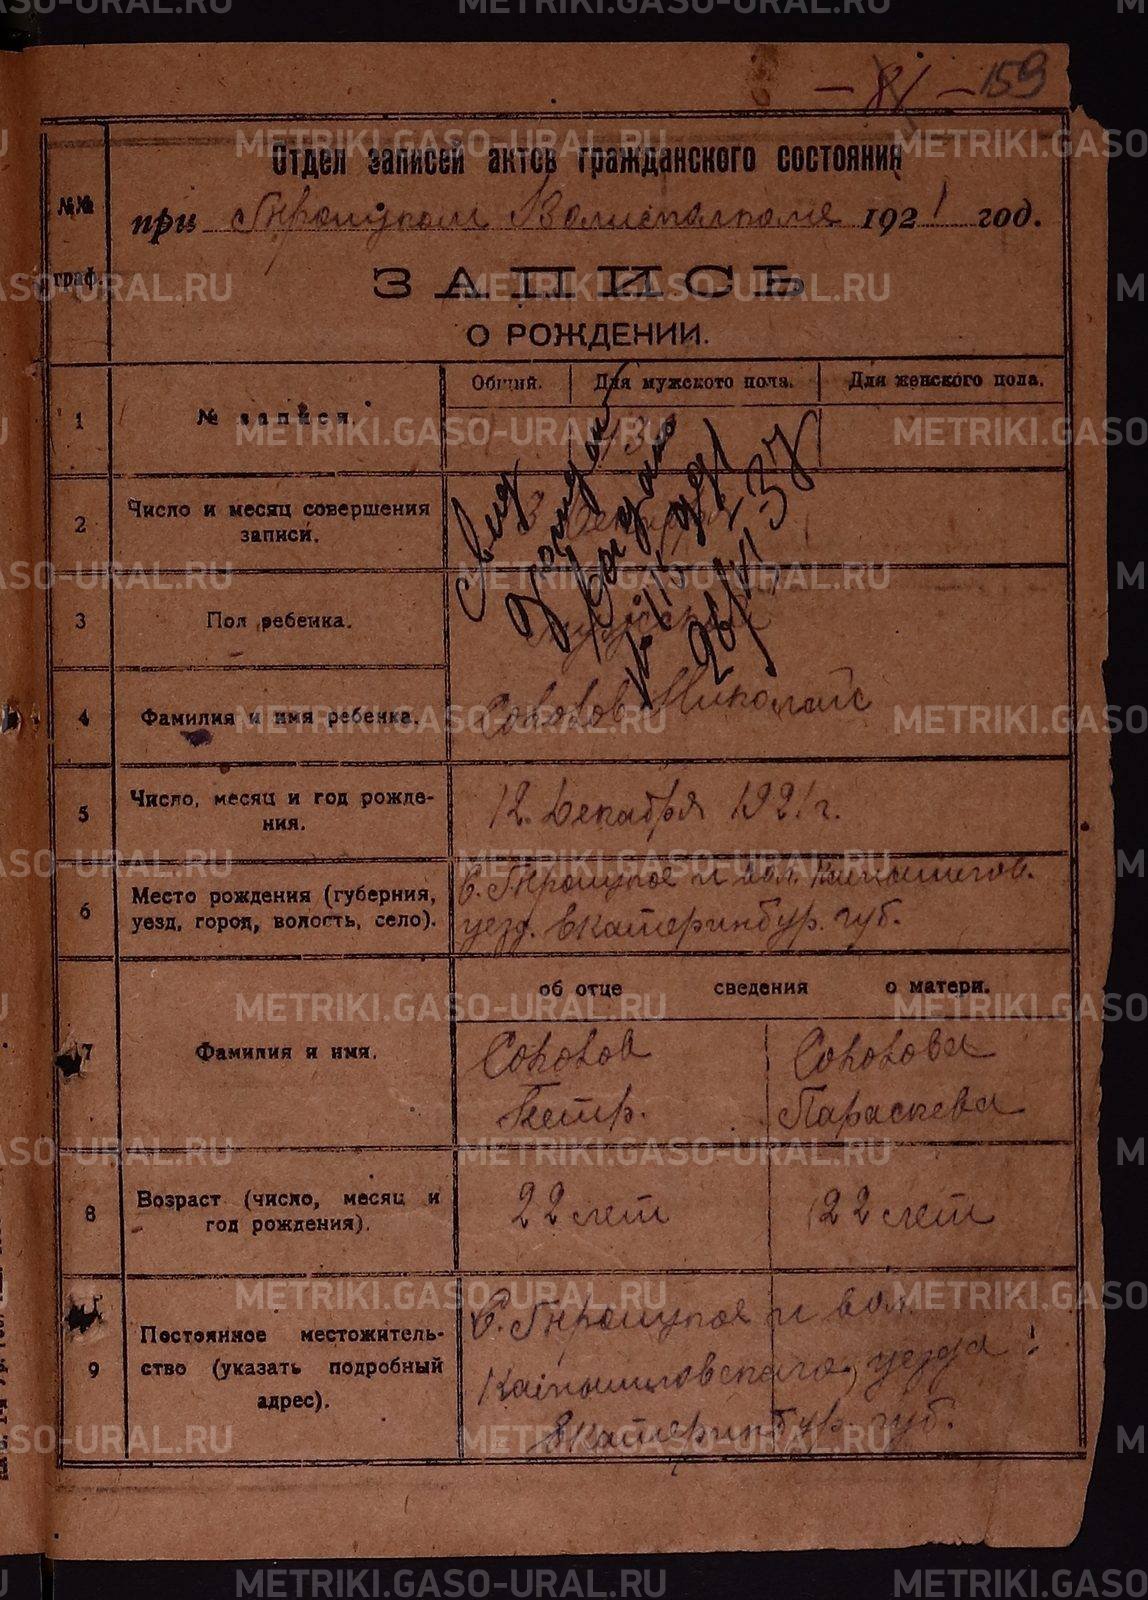 METRIKI.GASO-URAL.RU
- 81 - 159
Отдел записей актов гражданского состояния
при Троицком Волисполкоме 1921 год.
№№ граф.
ЗАПИСЬ
О РОЖДЕНИИ.
Общий. Для мужского пола. Для женского пола.
1 № записи.
2 Число и месяц совершения
записи.
3 Пол ребенка.
4 Фамилия и имя ребенка. Соколов Николай
5 Число, месяц и год рожде-
ния. 12. Декабря 1921 г.
6 Место рождения (губерния,
уезд, город, волость, село).
С. Троицкое и вол. Камышлов.
уезд. Екатеринбур. губ.
об отце сведения о матери.
7 Фамилия и имя.
Соколов Соколова
Петр. Параскева
8 Возраст (число, месяц и
год рождения).
22 лет 22 лет
9 Постоянное местожитель-
ство (указать подробный
адрес).
С. Троицкое и вол.
Камышловского, уезда
Екатеринбур. губ.
Свид